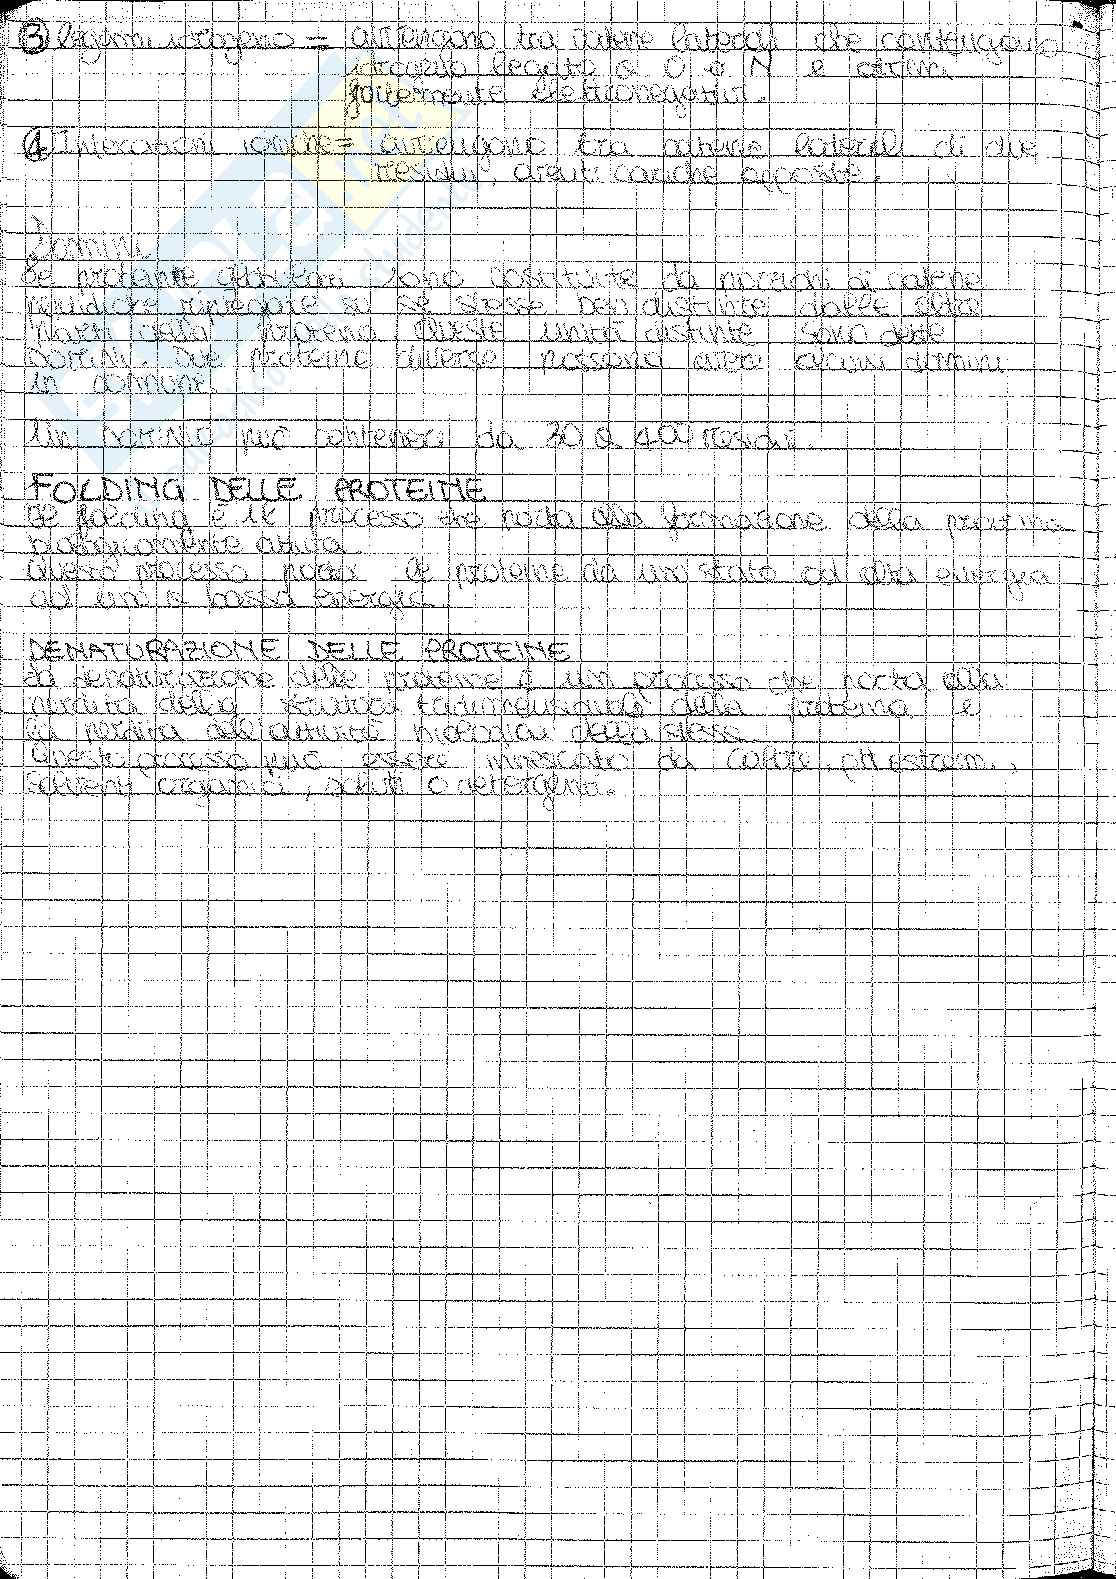 ③ legami idrogeno = avvengono tra catene laterali che contengono
idrogeno legato a O o N e atomi
fortemente elettronegativi.
④ Interazioni ioniche = avvengono tra catene laterali di due
residui, aventi cariche opposte.
Domini
Le proteine globulari sono costituite da porzioni di catene
peptidiche ripiegate su se stesse ben distinte dalle altre
parti della proteina queste unità distinte sono dette
DOMINI. Due proteine diverse possono avere alcuni domini
in comune.
Un dominio può contenere da 30 a 400 residui.
FOLDING DELLE PROTEINE
Il folding è il processo che porta alla formazione della proteina
biologicamente attiva
Questo processo porta le proteine da uno stato ad alta energia
ad uno a bassa energia.
DENATURAZIONE DELLE PROTEINE
La denaturazione delle proteine è un processo che porta alla
perdita della struttura tridimensionale della proteina e
la perdita dell'attività biologica della stessa
Questo processo può essere innescato da calore, pH estremi,
solventi organici, soluti o detergenti.